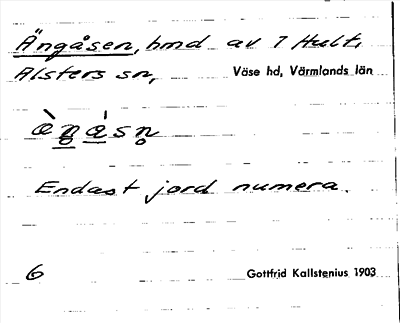 Ängåsen, hmd av 7 Hult,
Alsters sn, Väse hd, Värmlands län
Endast jord numera.
6 Gottfrid Kallstenius 1903